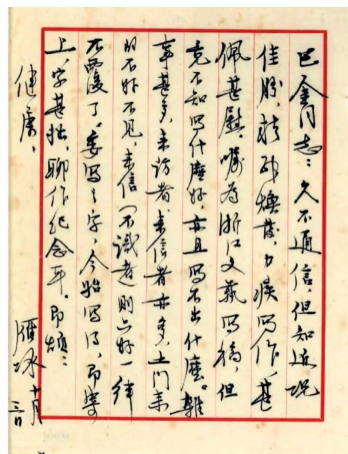 巴金同志：久不通信，但知近况
佳胜，精神焕发，力疾写作，甚
佩甚慰。嘱为浙江文艺写稿，但
竟不知写什麽好，亦且写不出什麽。杂
事甚多，来访者、来信者亦多，上门来
的不好不见，来信（不识者）则只好一律
不覆了。委写之字，今始写得，即寄
上，字甚拙，聊作纪念耳。即颂
健康，
雁冰 十月
三日